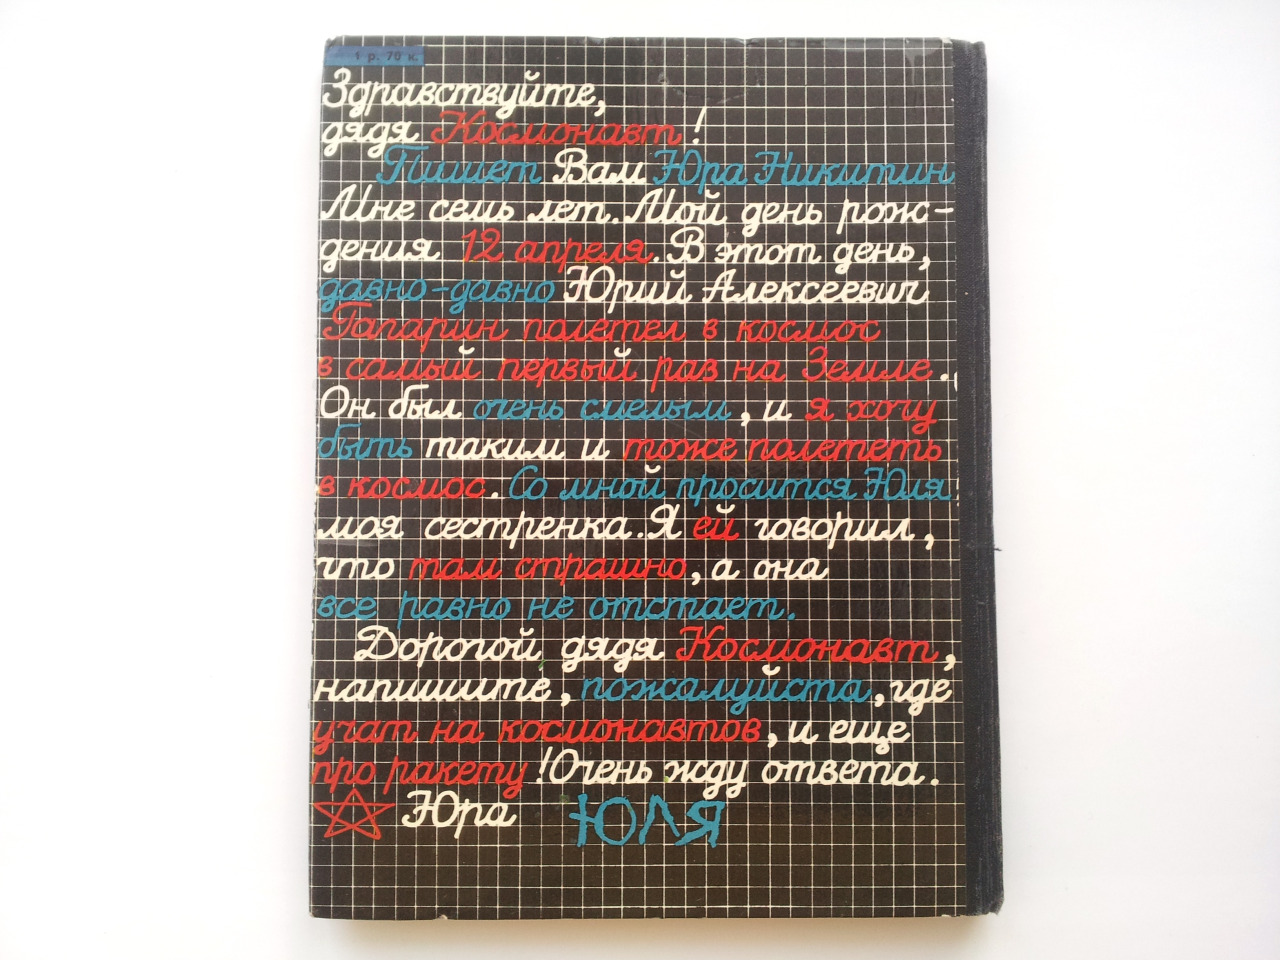 1 р. 70 к.
Здравствуйте,
дядя Космонавт!
Пишет Вам Юра Никитин
Мне семь лет. Мой день рож-
дения 12 апреля. В этот день,
давно-давно Юрий Алексеевич
Гагарин полетел в космос
в самый первый раз на Земле.
Он был очень смелым, и я хочу
быть таким и тоже полететь
в космос. Со мной просится Юля,
моя сестренка. Я ей говорил,
что там страшно, а она
все равно не отстает.
Дорогой дядя Космонавт,
напишите, пожалуйста, где
учат на космонавтов, и еще
про ракету! Очень жду ответа.
Юра ЮЛЯ